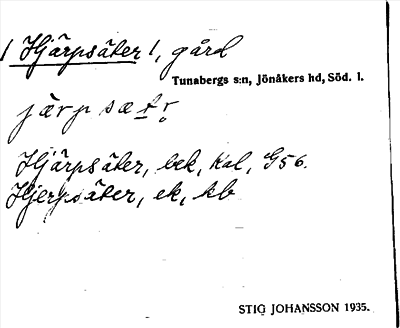 1 Hjärpsäter 1, gård
Tunabergs s:n, Jönåkers hd, Söd. l.
järpsætr̥
Hjärpsäter, bek, Kal, G56.
Hjerpsäter, ek, kb
STIG JOHANSSON 1935.